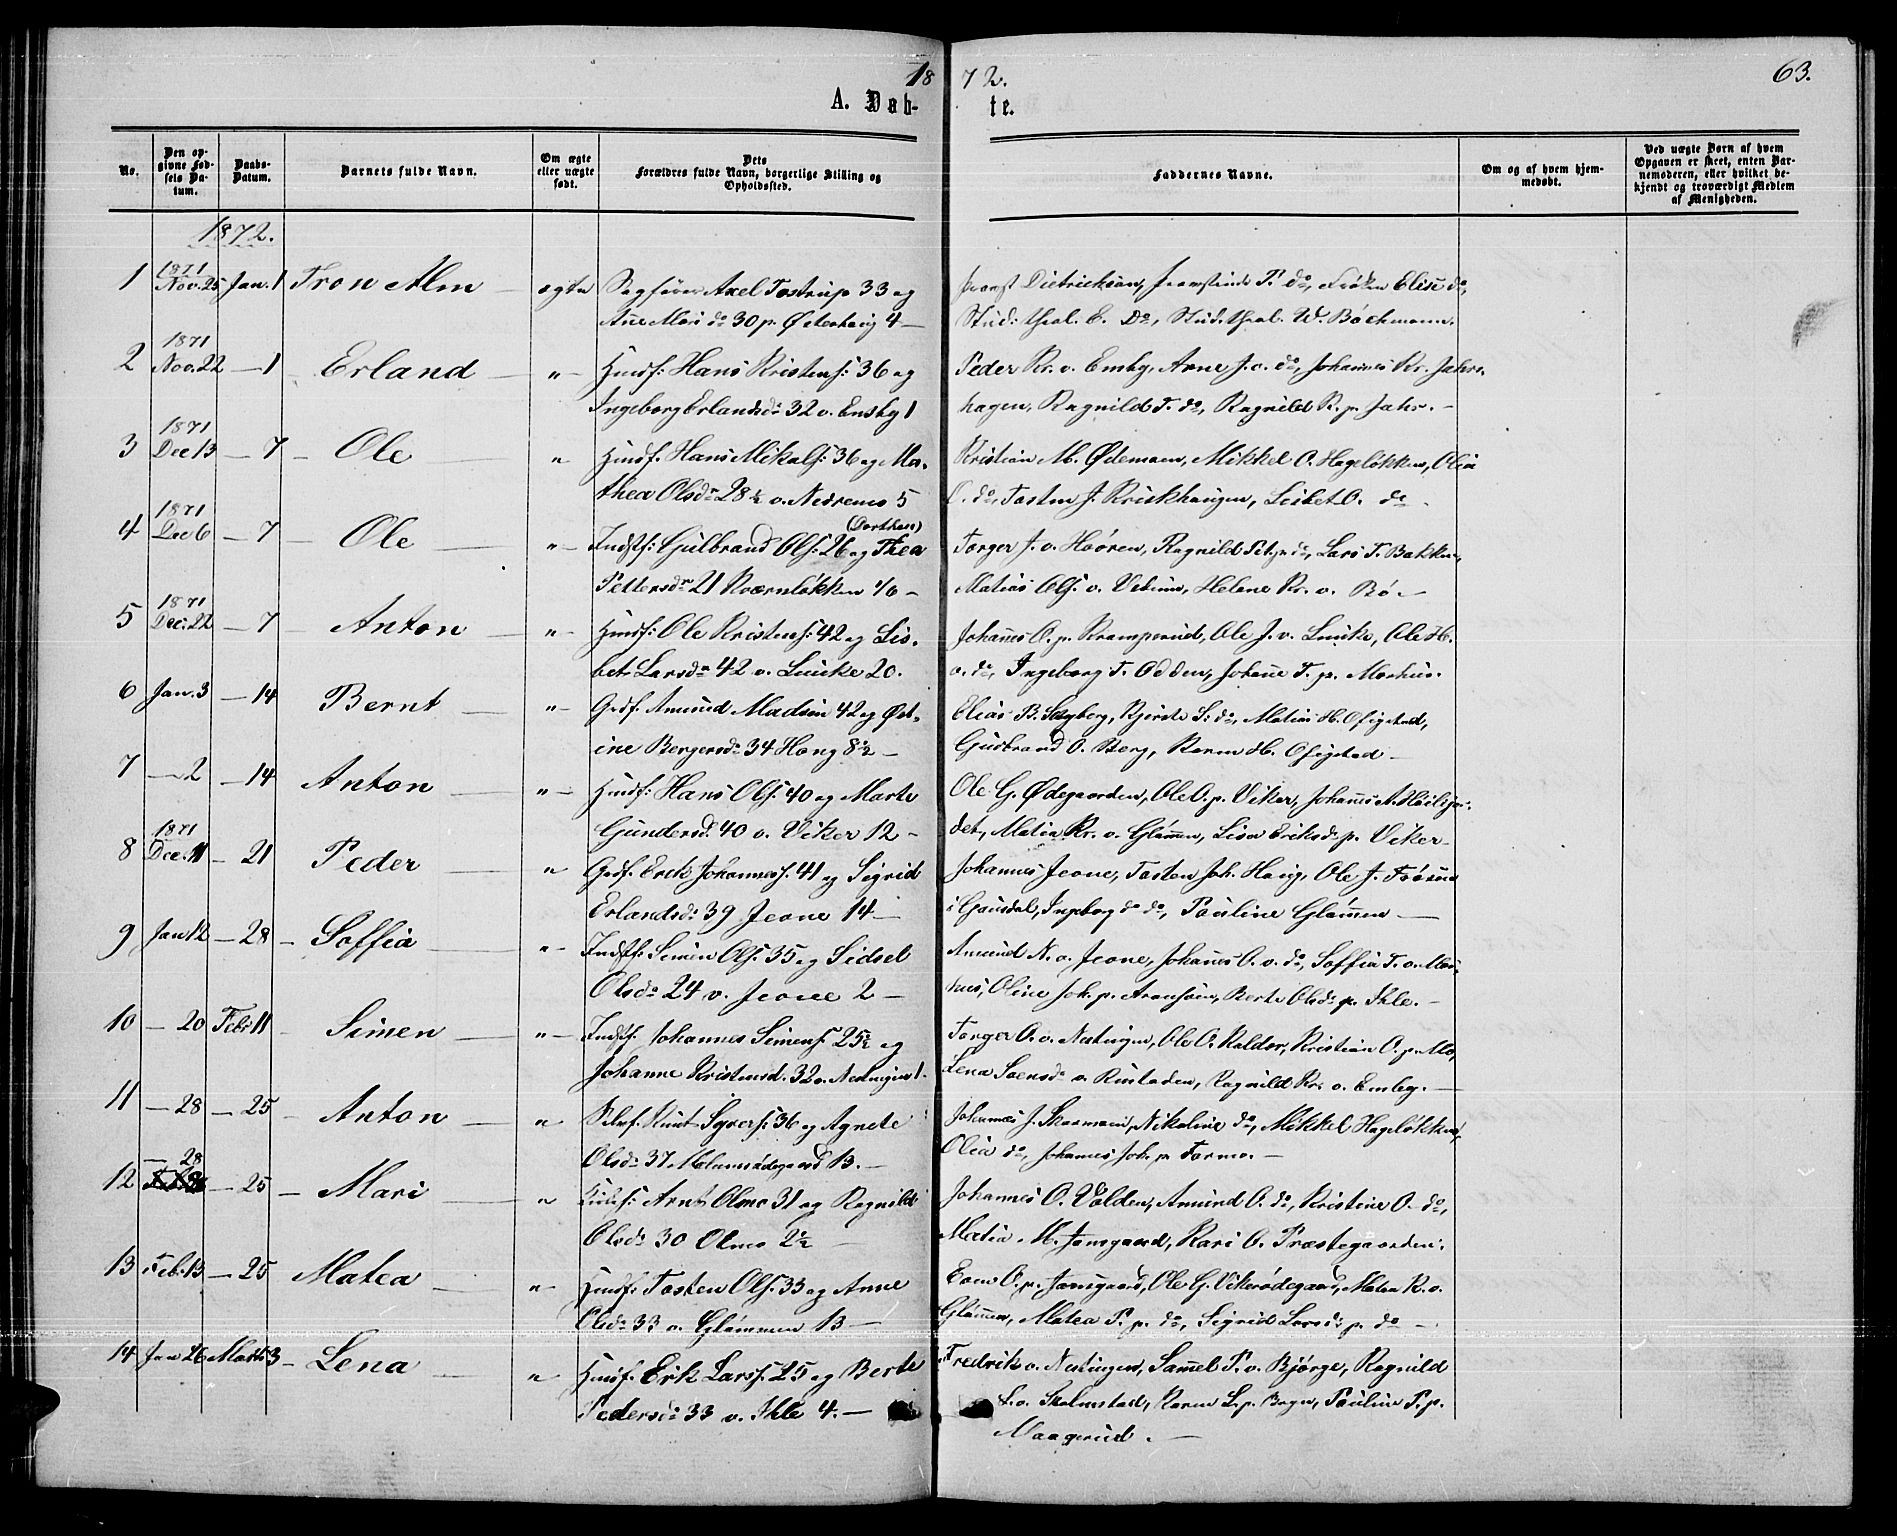 1872.
63.
A. Døb-
te.
No.
Den op-
givne Fød-
sels Da-
tum.
Daabs-
Datum.
Barnets fulde Navn.
Om ægte
eller uægte
født.
Dets
Forældres fulde Navn, borgerlige Stilling og
Opholdssted.
Faddernes Navne.
Om og af hvem hjem-
medøbt.
Ved uægte Børn af hvem
Opgaven er skeet, enten Bar-
nemoderen, eller hvilket be-
kjendt og troværdigt Medlem
af Menigheden.
1872.
1 1871 Nov. 25 Jan. 1 Tron Alm ægte Sagfører Axel Tostrup 33 og
Ane Mari do 30 p. Østerhaug 4
Provst Dietrichson, do, Frøken Elise do,
Stud. theol. E. Do, Stud. theol. W. Bøchmann.
2 1871 Nov. 22 1 Erland " Husf: Hans Kristens: 36 og
Ingeborg Erlandsdr 32 v. Ensby 1
Peder Kr. v. Ensby, Arne J. v. do, Johannes Kr. Jahrs-
hagen, Ragnild T. do, Ragnild R. p. Jahr.
3 1871 Dec 13 7 Ole " Husf. Hans Mikals: 36 og Ma-
thea Olsdr 28½ v. Nedremo 5
Kristian M. Ødemoen, Mikkel O. Hageløkken, Olia
O. do, Tosten J. Krickhaugen, Lisbet O. do
4 1871 Dec 6 7 Ole " Indstf: Gulbrand Ols: 26 og Thea (Dorthea)
Pettersdr 21 Kværnløkken 4/6
Torger J. v. Høøren, Ragnild Pet. p. do, Lars T. Bakken,
Matias Ols. v. Helene Kr. v. Bø.
5 1871 Dec: 22 7 Anton " Husf: Ole Kristens: 42 og Lis-
bet Larsdr 42 v. Lunke 20.
Johannes O. p. Kramperud, Ole J. v. Lunke, Ole H.
v. do, Ingeborg T. Odden, Johane T. p. Morhus.
6 Jan. 3 14 Bernt " Grdf. Amund Madsen 42 og Øst-
ine Bergersdr 34 Haug 8½
Elias B. Sagberg, Kjersti S: do, Matias H. Ofigstad,
Gudbrand O. Berg, Karen H. Ofigstad
7 2 14 Anton " Husf: Hans Ols: 40 og Marte
Gundersd. 40 v. Viker 12
Ole G. Ødegaarden, Ole O. p. Viker, Johannes A.
det, Matia Kr. v. Glømmen, Lisa Eriksdr p. Viker
8 1871 Dec. 11 21 Peder " Grdf. Erik Johanness. 41 og Sigrid
Erlandsdr 39 Jevne 14
Johannes Jevne, Tosten Joh. Haug, Ole J.
i Gausdal, Ingeborg do do, Pauline Glømmen
9 Jan 12 28 Soffia " Indstf: Simen Ols. 35 og Sidsel
Olsdr 24 v. Jevne 2
Amund N. v. Jevne, Johannes O. v. do, Soffia T. v. Mor-
hus, Oline Joh. p. Berte Olsdr p. Ihle.
10 20 Feb: 11 Simen " Indstf. Johannes Simens: 25½ og
Johanne Kristensd. 32 v. Nestingen 1
Torger A. v. Nestingen, Ole O. Kalder, Kristian O. p. Mo,
Lena Svensdr v. Rustaden, Ragnild Kr. v. Ensby.
11 28 25 Anton " Knut Syvers: 36 og Agnete
Olsdr 37 Malmsødegaard 13.
Johannes J. Nikoline do, Mikkel Hageløkken,
Olia do, Johannes Joh. p. Formo.
12 28 25 Mari " Arnt Olmo 31 og Ragnild
Olsdr 30 Olmo 2½
Johannes O. Volden, Amund O. do, Kristine O. do,
Matia M. Jonsgaard, Kari O. Præstegaarden.
13 Feb. 13 25 Matea " Husf: Tosten Ols: 33 og Anne
Olsdr 33 v. Glømmen 13
Even O. p. Jonsgaard, Ole G. Vikerødegaard, Matea R. v.
Glømmen, Matea P. p. do, Sigrid Larsdr p. do
14 Jan 26 Marts 3 Lena " Husf. Erik Larss: 25 og Berte
Pedersdr 33 v. Ihle 4.
Fredrik v. Nestingen, Samuel P. v. Bjørge, Ragnild
L. v. Skolmstad, Karen L. p. Pauline P. p.
Maagerud.